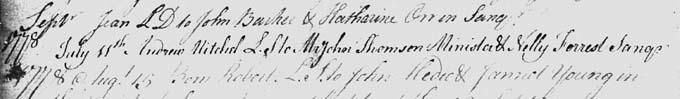 Septr Jean L D to John Barker & Katharine Orr in Sanqr
1778 July 11th Andrew Mitchel L S to Mr John Thomson Minister & Nelly Forrest Sanqr
1778 Augt 15 Born Robert L S to John & Jannet Young in